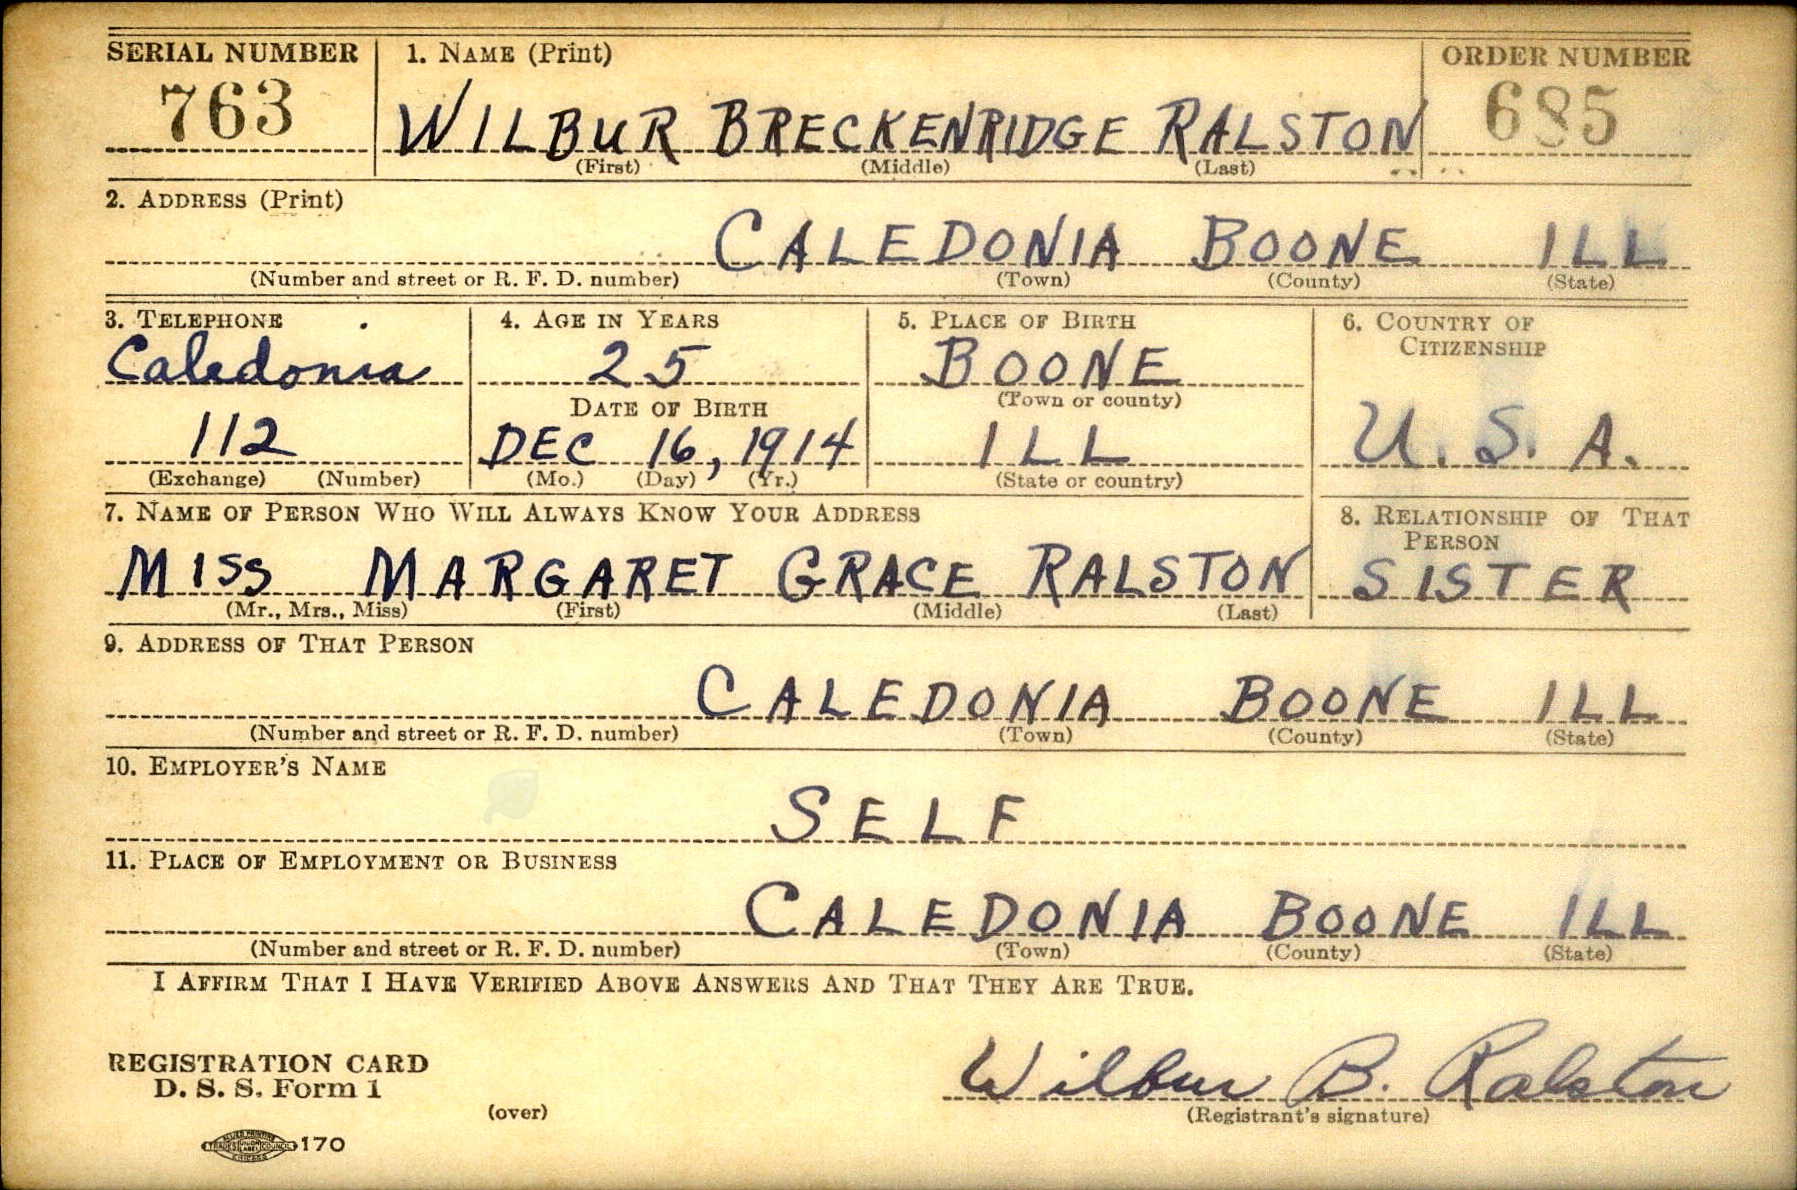 SERIAL NUMBER 1. NAME (Print) ORDER NUMBER
763 WILBUR BRECKENRIDGE RALSTON 685
(First) (Middle) (Last)
2. ADDRESS (Print)
CALEDONIA BOONE ILL
(Number and street or R. F. D. number) (Town) (County) (State)
3. TELEPHONE 4. AGE IN YEARS 5. PLACE OF BIRTH 6. COUNTRY OF
CITIZENSHIP
Caledonia 25 BOONE
DATE OF BIRTH (Town or county)
112 DEC 16, 1914 ILL U. S. A.
(Exchange) (Number) (Mo.) (Day) (Yr.) (State or country)
7. NAME OF PERSON WHO WILL ALWAYS KNOW YOUR ADDRESS 8. RELATIONSHIP OF THAT
PERSON
MISS MARGARET GRACE RALSTON SISTER
(Mr., Mrs., Miss) (First) (Middle) (Last)
9. ADDRESS OF THAT PERSON
CALEDONIA BOONE ILL
(Number and street or R. F. D. number) (Town) (County) (State)
10. EMPLOYER'S NAME
SELF
11. PLACE OF EMPLOYMENT OR BUSINESS
CALEDONIA BOONE ILL
(Number and street or R. F. D. number) (Town) (County) (State)
I AFFIRM THAT I HAVE VERIFIED ABOVE ANSWERS AND THAT THEY ARE TRUE.
REGISTRATION CARD
D. S. S. Form 1
Wilbur B. Ralston
(over) (Registrant's signature)
ALLIED PRINTING
TRADES UNION LABEL COUNCIL 170
CHICAGO